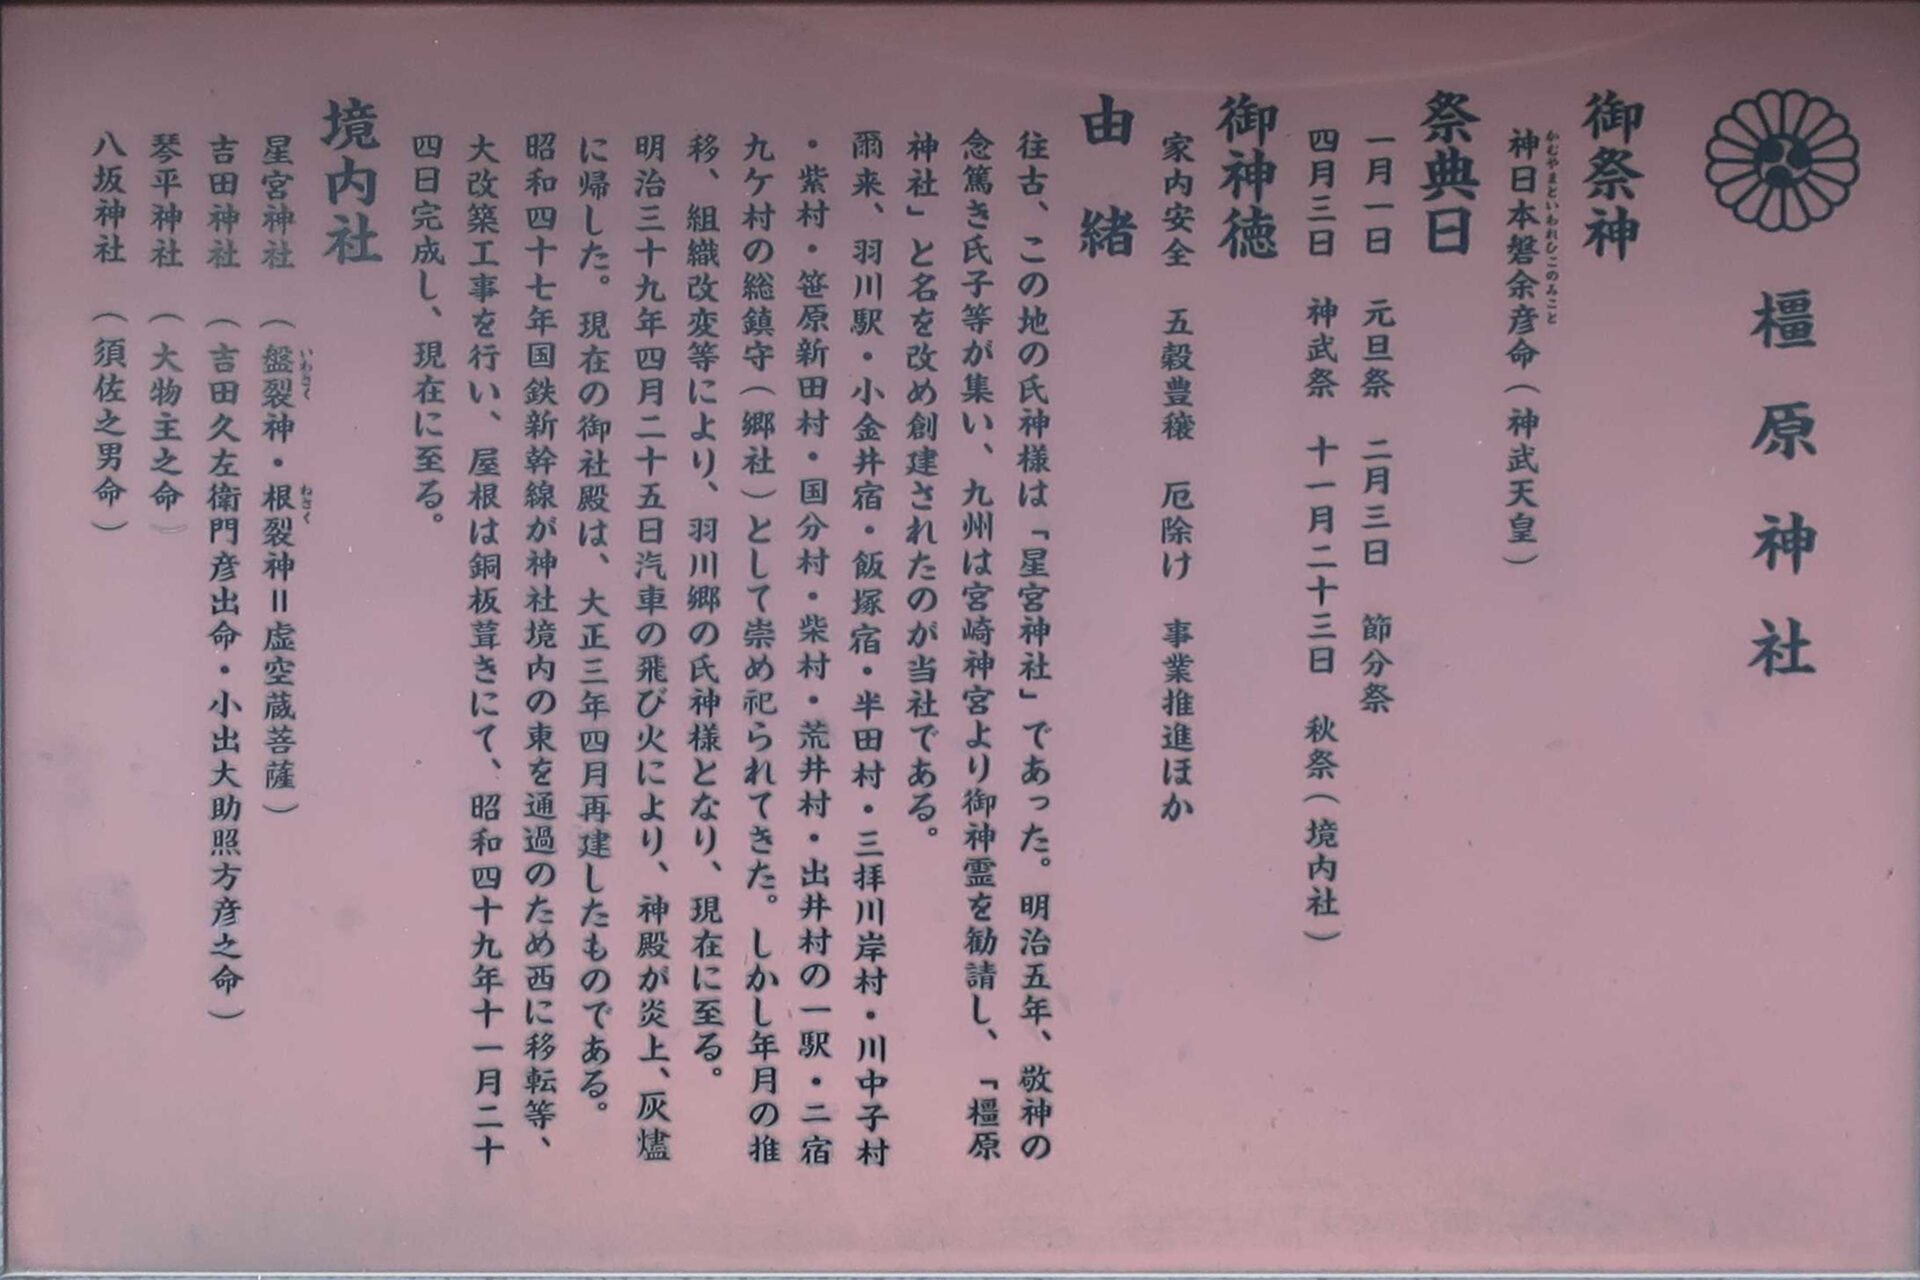 橿原神社
御祭神
神日本磐余彦命（神武天皇）
かむやまといわれひこのみこと
祭典日
一月一日　元旦祭　二月三日　節分祭
四月三日　神武祭　十一月二十三日　秋祭（境内社）
御神徳
家内安全　五穀豊穣　厄除け　事業推進ほか
由　緒
往古、この地の氏神様は「星宮神社」であった。明治五年、敬神の
念篤き氏子等が集い、九州は宮崎神宮より御神霊を勧請し、「橿原
神社」と名を改め創建されたのが当社である。
爾来、羽川駅・小金井宿・飯塚宿・半田村・三拝川岸村・川中子村
・紫村・笹原新田村・国分村・柴村・荒井村・出井村の一駅・二宿
九ケ村の総鎮守（郷社）として崇め祀られてきた。しかし年月の推
移、組織改変等により、羽川郷の氏神様となり、現在に至る。
明治三十九年四月二十五日汽車の飛び火により、神殿が炎上、灰燼
に帰した。現在の御社殿は、大正三年四月再建したものである。
昭和四十七年国鉄新幹線が神社境内の東を通過のため西に移転等、
大改築工事を行い、屋根は銅板葺きにて、昭和四十九年十一月二十
四日完成し、現在に至る。
境内社
星宮神社　（盤裂神・根裂神＝虚空蔵菩薩）
いわさく　ねさく
吉田神社　（吉田久左衛門彦出命・小出大助照方彦之命）
琴平神社　（大物主之命）
八坂神社　（須佐之男命）